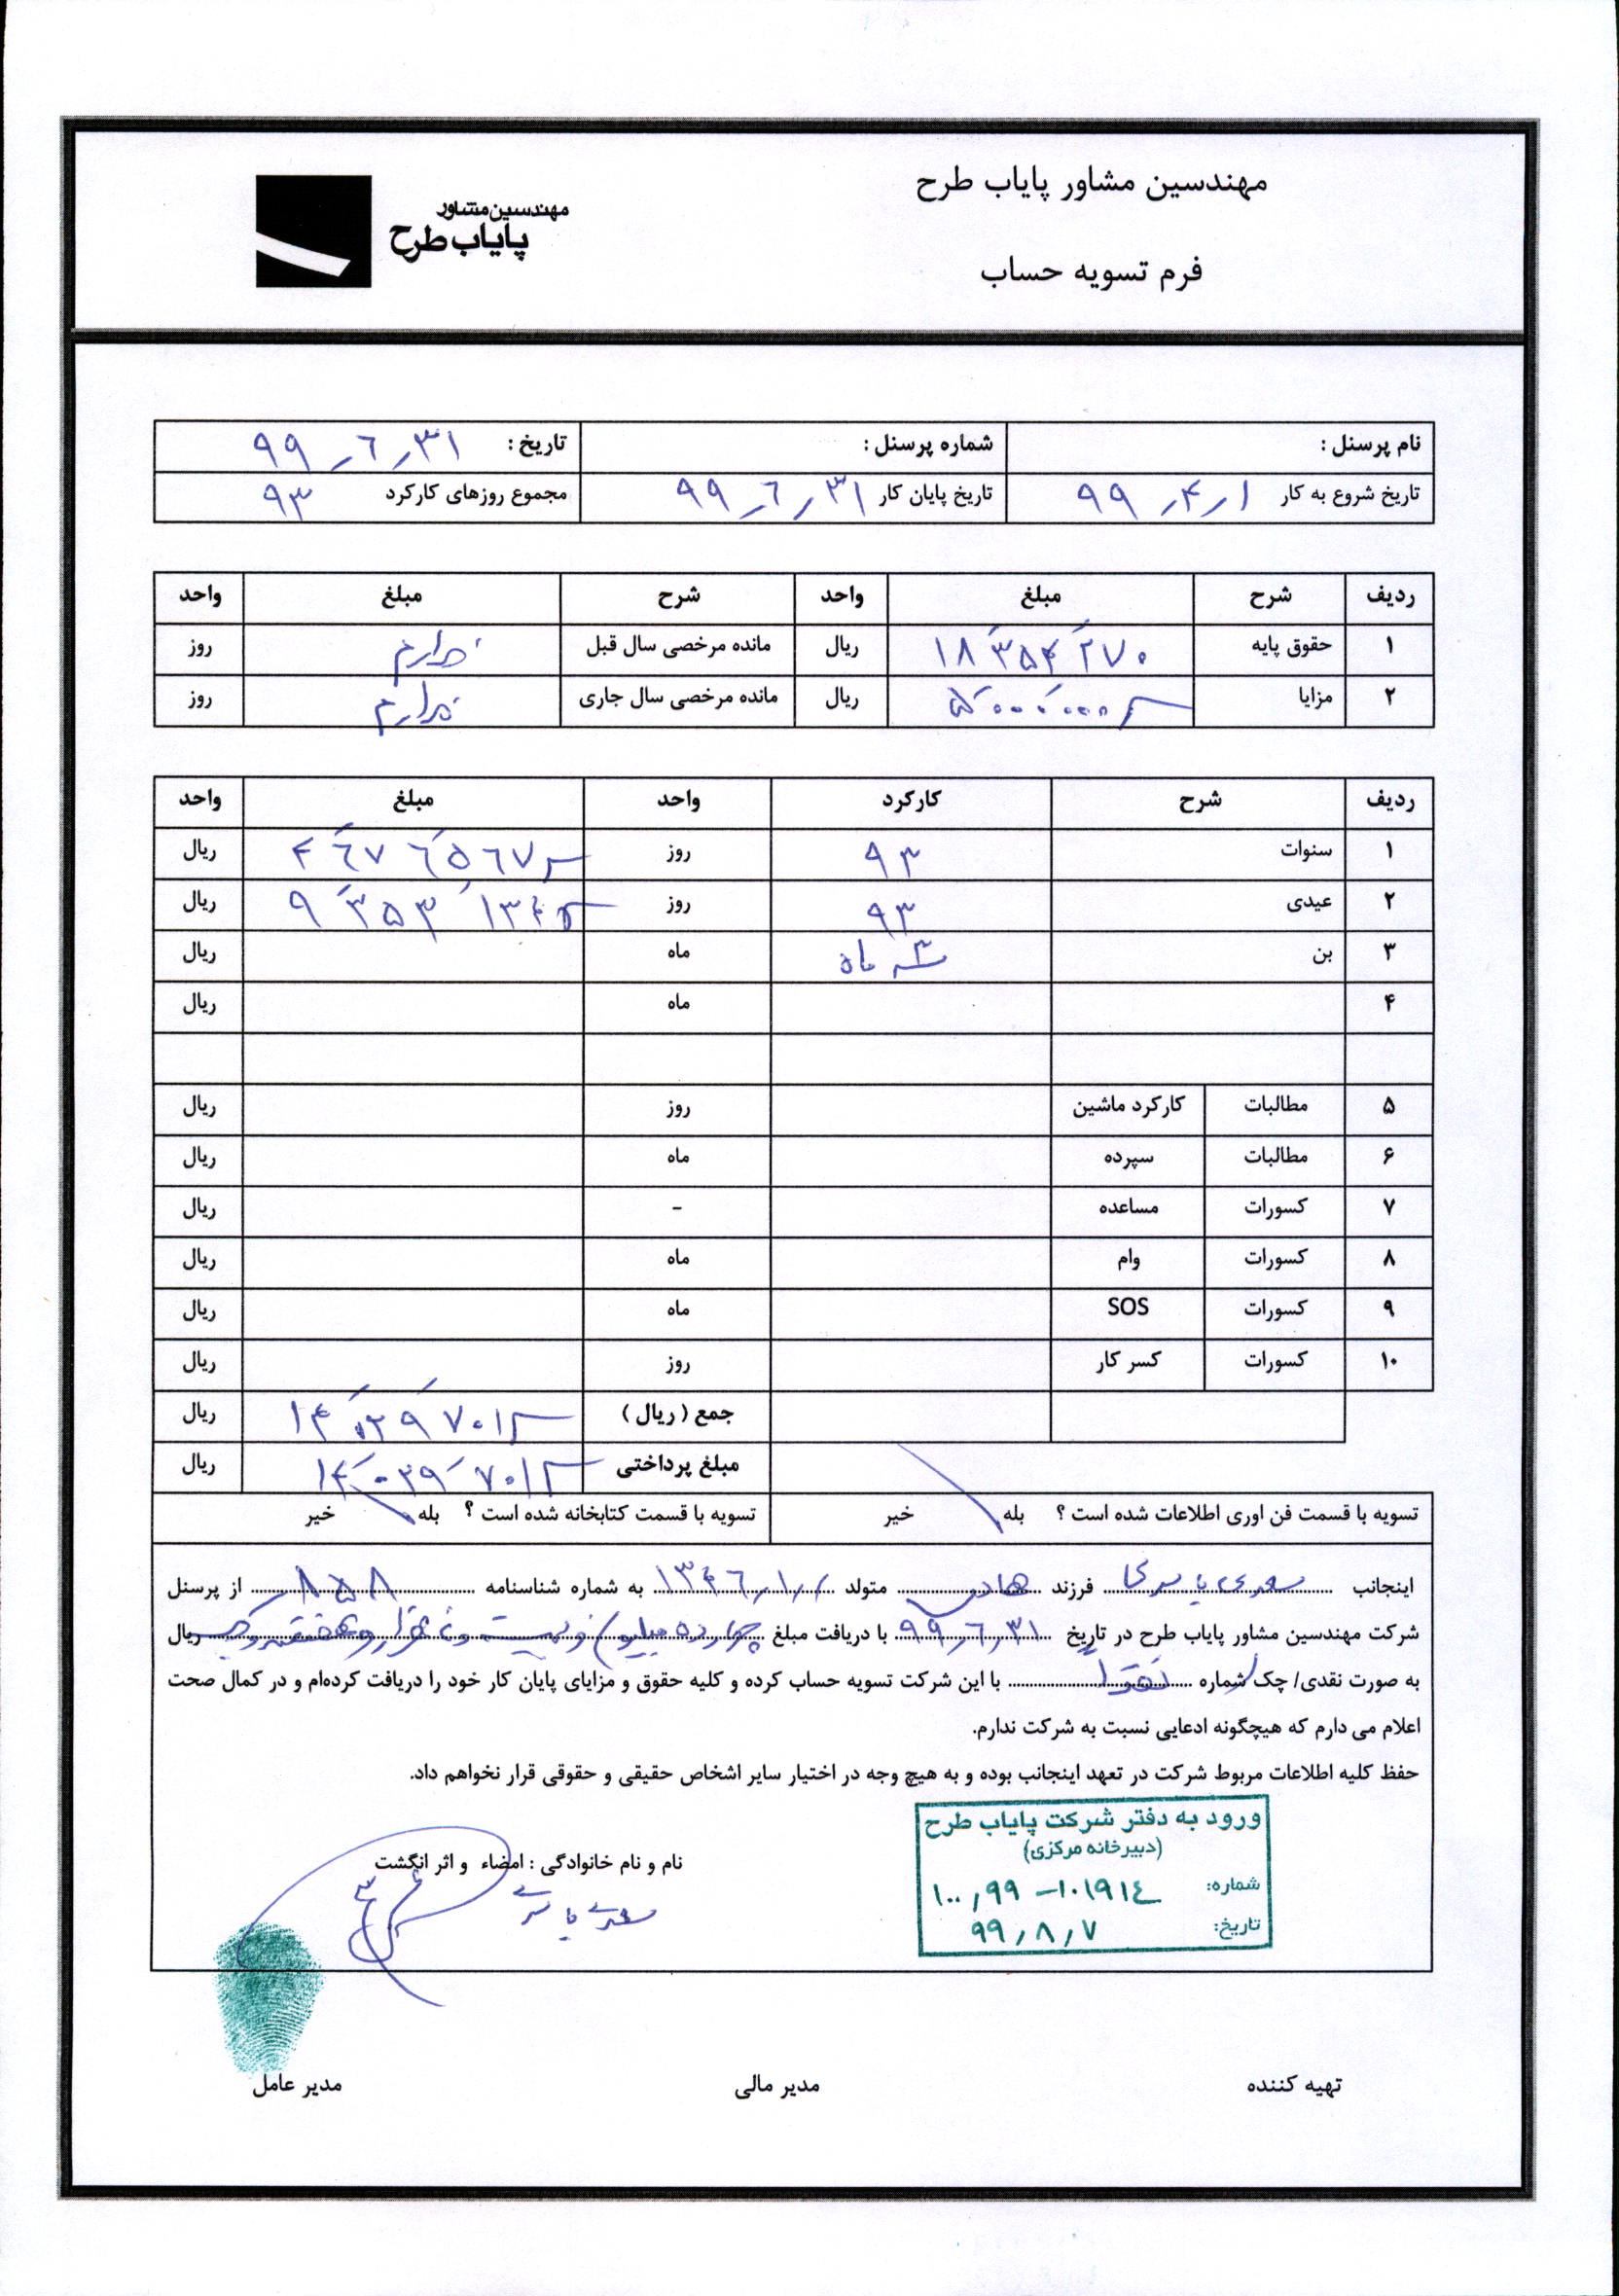 مهندسین مشاور پایاب طرح
مهندسین مشاور
پایاب طرح
فرم تسویه حساب
نام پرسنل : شماره پرسنل : تاریخ : ۹۹٫۶٫۳۱
تاریخ شروع به کار ۹۹٫۴٫۱ تاریخ پایان کار ۹۹٫۶٫۳۱ مجموع روزهای کارکرد ۹۳
ردیف شرح مبلغ واحد شرح مبلغ واحد
۱ حقوق پایه ۱۸٬۳۵۴٬۲۷۰ ریال مانده مرخصی سال قبل ندارم روز
۲ مزایا ۵٬۰۰۰٬۰۰۰ ریال مانده مرخصی سال جاری ندارم روز
ردیف شرح کارکرد واحد مبلغ واحد
۱ سنوات ۹۳ روز ۴٬۶۷۶٬۵۶۷ ریال
۲ عیدی ۹۳ روز ریال
۳ بن سه ماه ماه ریال
۴ ماه ریال
۵ مطالبات کارکرد ماشین روز ریال
۶ مطالبات سپرده ماه ریال
۷ کسورات مساعده - ریال
۸ کسورات وام ماه ریال
۹ کسورات SOS ماه ریال
۱۰ کسورات کسر کار روز ریال
جمع ( ریال ) ۱۴٬۰۲۹٬۷۰۱ ریال
مبلغ پرداختی ۱۴٬۰۲۹٬۷۰۱ ریال
تسویه با قسمت فن اوری اطلاعات شده است ؟ بله خیر تسویه با قسمت کتابخانه شده است ؟ بله خیر
اینجانب فرزند هادی متولد ۱۳۴۶٫۱٫۱ به شماره شناسنامه ۸۵۸ از پرسنل
شرکت مهندسین مشاور پایاب طرح در تاریخ ۹۹٫۶٫۳۱ با دریافت مبلغ چهارده میلیون و بیست و نه هزار و هفتصد و یک ریال
به صورت نقدی/ چک شماره نقدا با این شرکت تسویه حساب کرده و کلیه حقوق و مزایای پایان کار خود را دریافت کرده‌ام و در کمال صحت
اعلام می دارم که هیچگونه ادعایی نسبت به شرکت ندارم.
حفظ کلیه اطلاعات مربوط شرکت در تعهد اینجانب بوده و به هیچ وجه در اختیار سایر اشخاص حقیقی و حقوقی قرار نخواهم داد.
ورود به دفتر شرکت پایاب طرح
(دبیرخانه مرکزی)
شماره: ۱۰۰٫۹۹-۱۰۱۹۱٤
تاریخ: ۹۹٫۸٫۷
نام و نام خانوادگی : امضاء و اثر انگشت
تهیه کننده مدیر مالی مدیر عامل